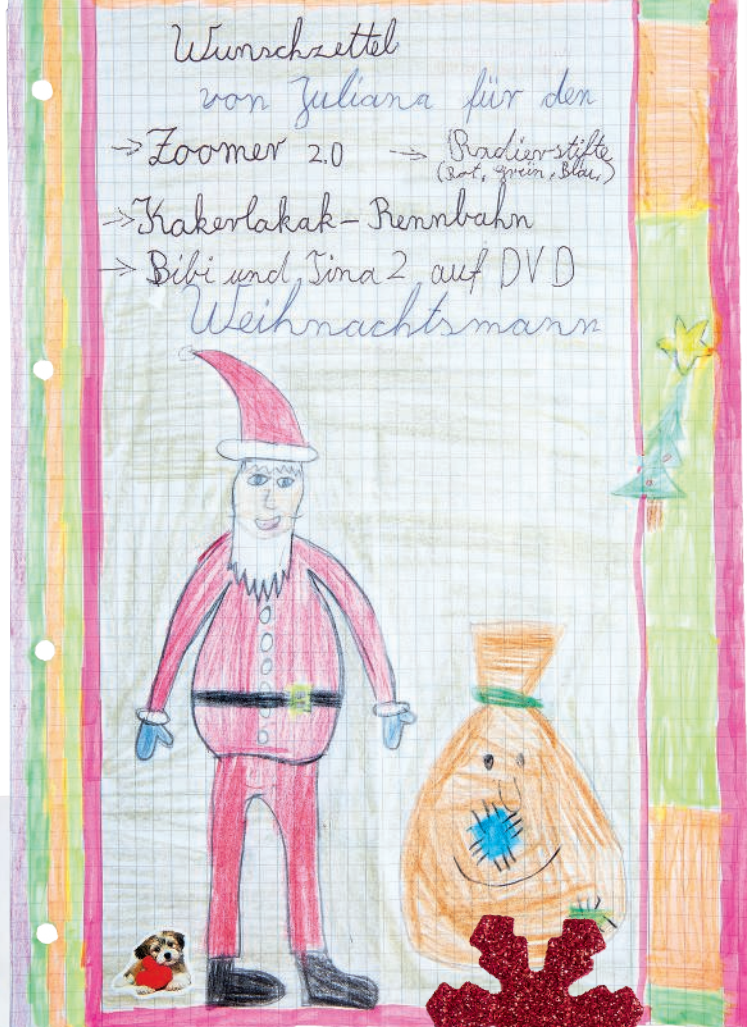 Wunschzettel
von Juliana für den
→ Zoomer 2.0 → Radierstifte
(Rot, grün, Blau,)
→ Kakerlakak-Rennbahn
→ Bibi und Tina 2 auf DVD
Weihnachtsmann